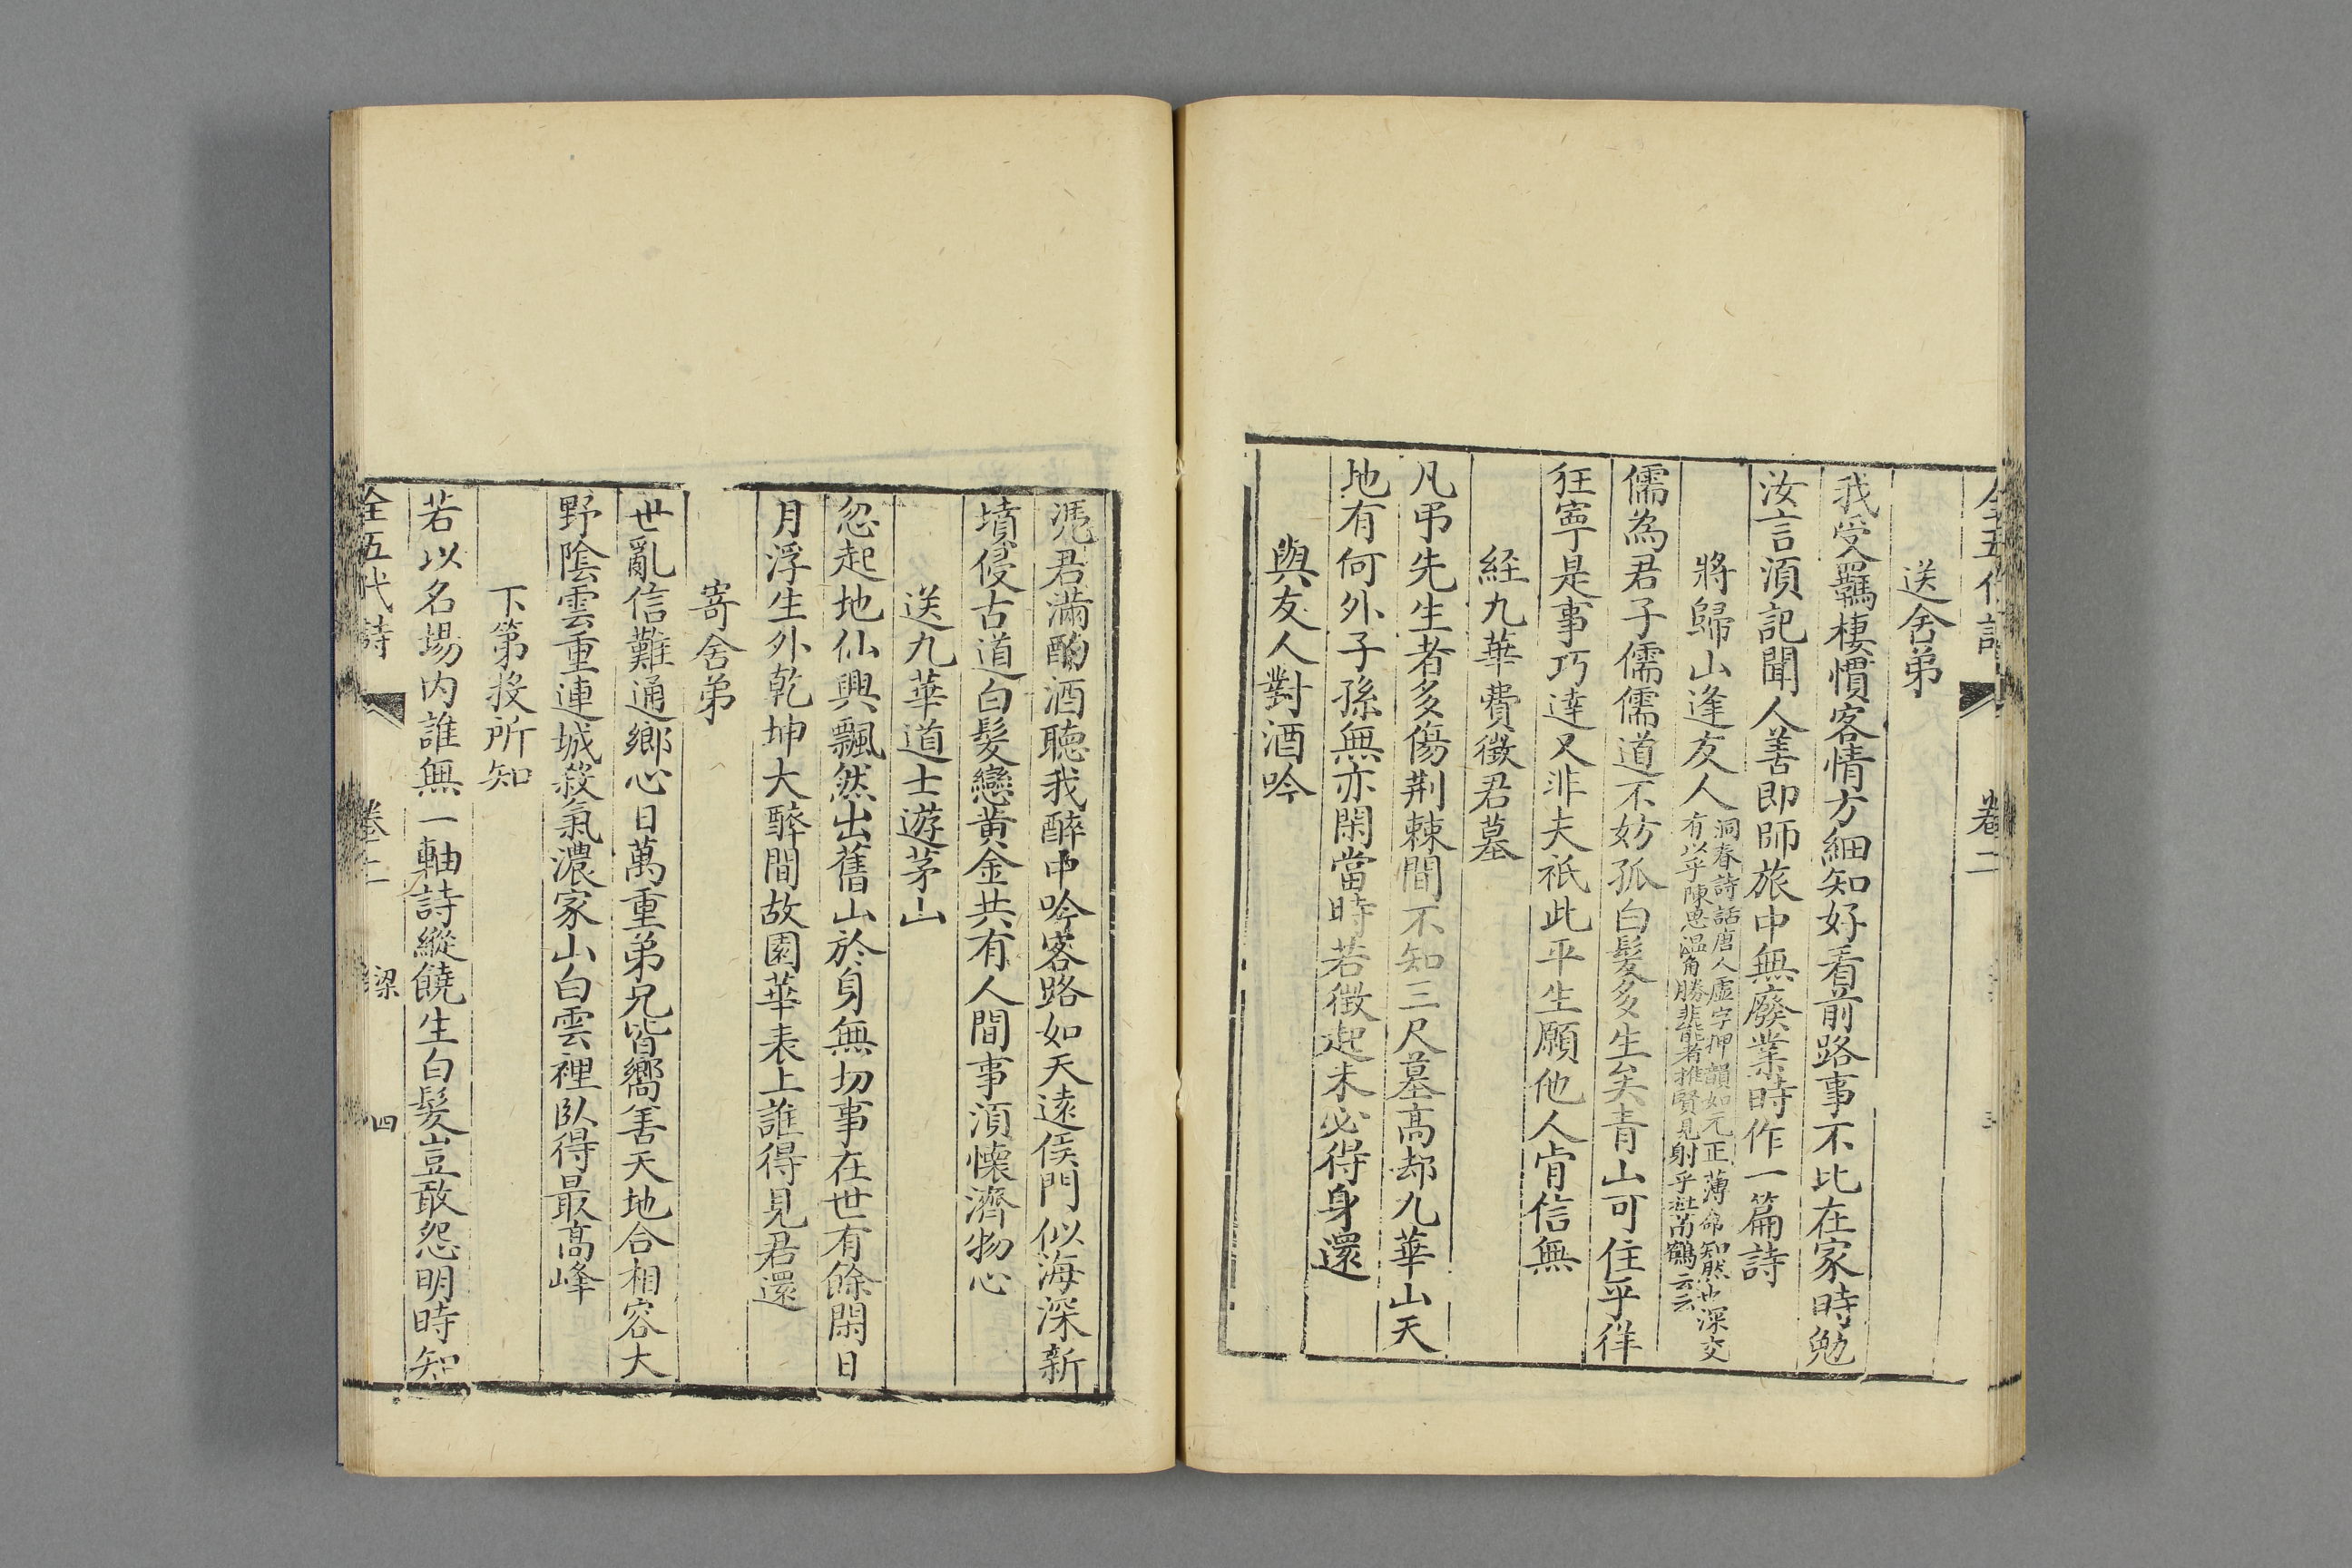 全五代詩 卷二 三
送舍弟
我受羈棲慣客情方細知好看前路事不比在家時勉
汝言須記聞人善即師旅中無廢業時作一篇詩
將歸山逢友人
洞春詩話唐人虛字押韻如元正薄命知然也深交
有以乎陳
儒為君子儒儒道不妨孤白髮多生矣青山可住乎徉
狂寧是事巧達又非夫祇此平生願他人肯信無
經九華費徵君墓
凡弔先生者多傷荆棘間不知三尺墓高却九華山天
地有何外子孫無亦閑當時若徵起未必得身還
與友人對酒吟
凴君滿酌酒聽我醉中吟客路如天遠侯門似海深新
墳侵古道白髮戀黃金共有人間事須懷濟物心
送九華道士遊茅山
忽起地仙興飄然出舊山於身無切事在世有餘閑日
月浮生外乾坤大醉間故園華表上誰得見君還
寄舍弟
世亂信難通鄉心日萬重弟兄皆嚮善天地合相容大
野陰雲重連城殺氣濃家山白雲裡臥得最高峰
下第投所知
若以名場內誰無一軸詩縱饒生白髮豈敢怨明時知
全五代詩 卷二 梁 四